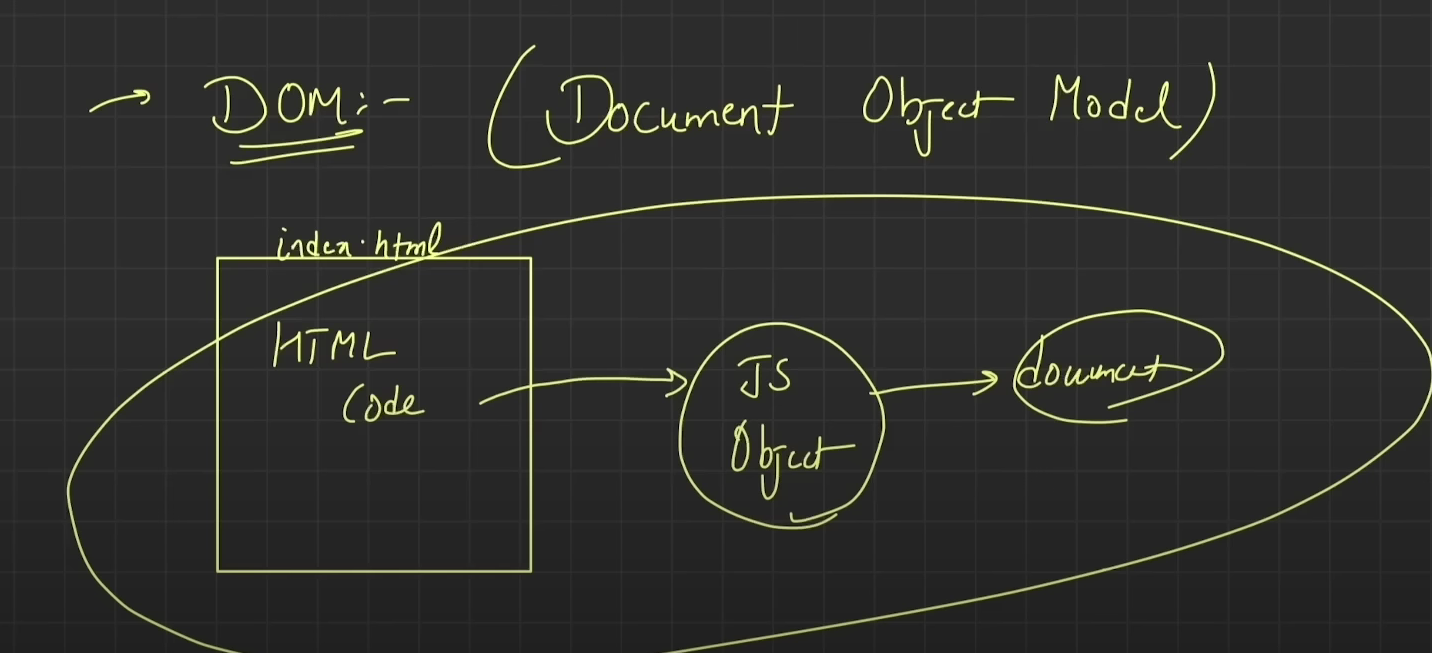 → DOM:- (Document Object Model)
index.html
HTML
Code
JS
Object
document